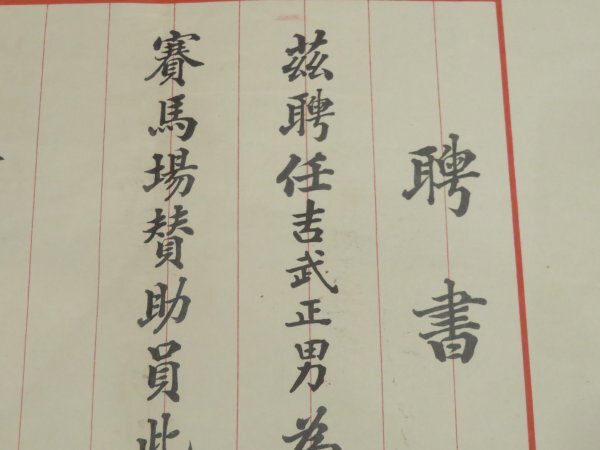 聘書
茲聘任吉武正男為
賽馬場賛助員此